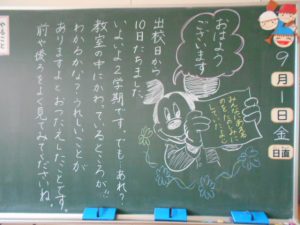 やること
おはよう
ございます
みなにあえるのをたのしみにしていたよ
出校日から
10日たちました
いよいよ2学期です。でも…あれ？
教室の中にかわっているところが!!
わかるかな？うれしいことが
ありますよとおつたえしたことです。
前や後ろをよく見てみてくださいね。
9
月
1
日
金
日直